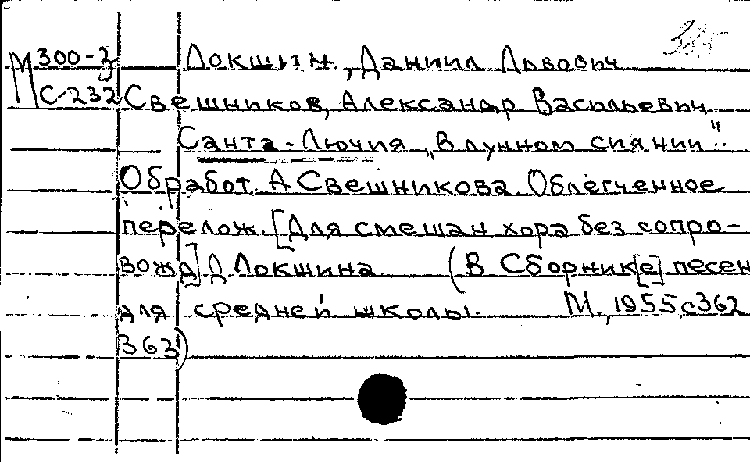 М 300-3 Локшин, Даниил Львович
С-232 Свешников, Александр Васильевич
Санта-Лючия „В лунном сиянии“.
Обработ. А Свешникова. Облегченное
перелож. [Для смешан хора без сопро-
вожд] Д Локшина (В Сборник[е] песен
для средней школы. М., 1955, с 362
363)